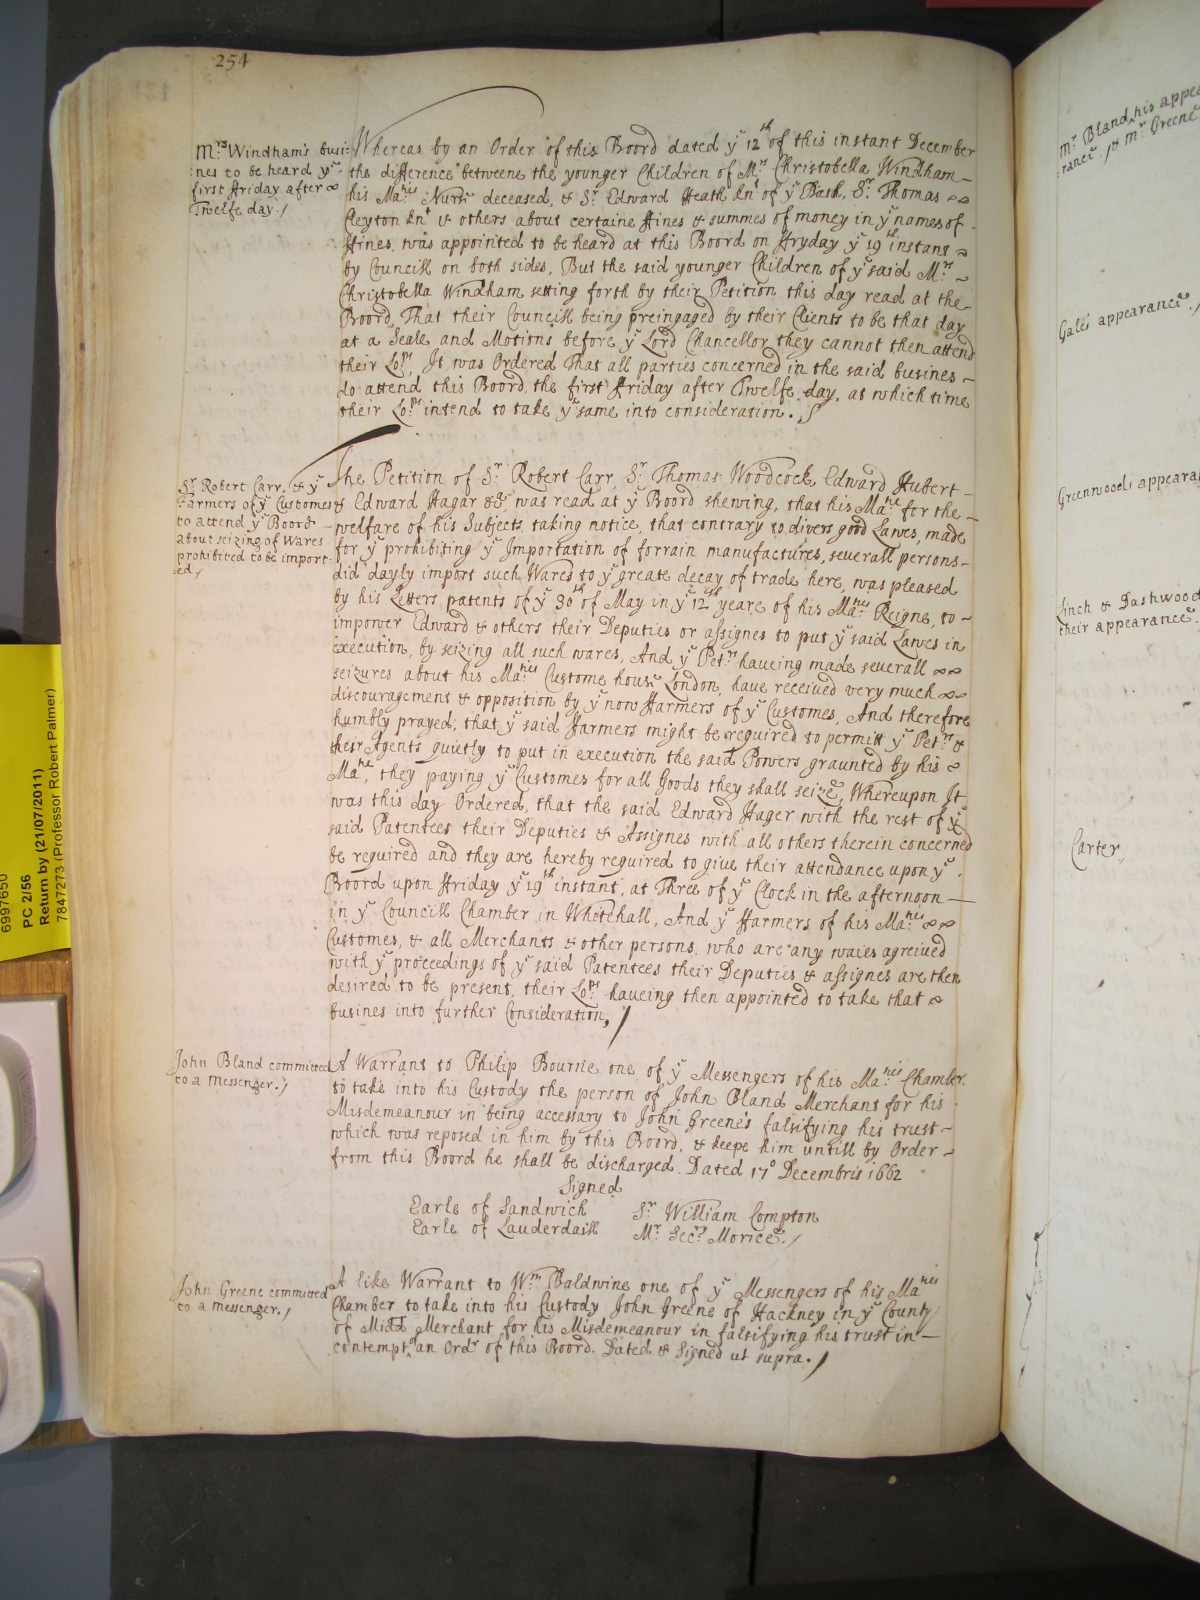 254
Mrs Windham's busi=
nes to be heard ye
first ffriday after
Twelfe day./
Whereas by an Order of this Board dated ye 12th of this instant December
the difference betweene the younger Children of Mrs Christobella Windham
his Maties Nurse deceased, & Sr Edward Heath Knt of ye Bath, Sr Thomas
Cleyton Knt & others about certaine ffines & summes of money in ye names of
ffines, was appointed to be heard at this Board on ffryday ye 19th instant
by Councill on both sides, But the said younger Children of ye said Mrs
Christobella Windham setting forth by their Petition this day read at the
Board, That their Councill being preingaged by their Clients to be that day
at a Seale and Motions before ye Lord Chancellor they cannot then attend
their Lopps, It was Ordered That all parties concerned in the said busines
do attend this Board the first ffriday after Twelfe day, at which time
their Lopps intend to take ye same into consideration./
Sr Robert Carr, & ye
ffarmers of ye Customes
to attend ye Board
about seizing of Wares
prohibited to be import
ed/
The Petition of Sr Robert Carr, Sr Thomas Woodcock, Edward Hubert
& Edward Hagar &c, was read at ye Board shewing, that his Matie for the
welfare of his Subjects, taking notice, that contrary to divers good Lawes, made
for ye prohibiting ye Importation of forrain manufactures, severall persons
did dayly import such Wares to ye greate decay of trade here, was pleased
by his Letters patents of ye 30th of May in ye 12th yeare of his Maties Reigne, to
impower Edward & others their Deputies or assignes to put ye said Lawes in
execution, by seizing all such wares, And ye Petrs haveing made severall
seizures about his Maties Custome house London, have received very much
discouragement & opposition by ye now ffarmers of ye Customes, And therefore
humbly prayed, that ye said ffarmers might be required to permitt ye Petrs &
their Agents quietly to put in execution the said Powers graunted by his
Matie, they paying ye Customes for all Goods they shall seize, Whereupon It
was this day Ordered, that the said Edward Hager with the rest of ye
said Patentees their Deputies & Assignes with all others therein concerned
be required and they are hereby required to give their attendance upon ye
Board upon ffriday ye 19th instant, at Three of ye Clock in the afternoon
in ye Councill Chamber in Whitehall, And ye ffarmers of his Maties
Customes, & all Merchants & other persons, who are any waies agreived
with ye proceedings of ye said Patentees their Deputies & assignes are then
desired to be present, their Lopps haveing then appointed to take that
busines into further Consideration,/
John Bland committed
to a Messenger./
A Warrant to Philip Bourne one of ye Messengers of his Maties Chamber
to take into his Custody the person of John Bland Merchant for his
Misdemeanour in being accessary to John Greene's falsifying his trust
which was reposed in him by this Board, & keepe him untill by Order
from this Board he shall be discharged. Dated 17o Decembris 1662
Signed
Earle of Sandwich Sr William Compton
Earle of Lauderdaill Mr Secry Morice./
John Greene committed
to a Messenger./
A like Warrant to Wm Baldwine one of ye Messengers of his Maties
Chamber to take into his Custody John Greene of Hackney in ye County
of Midd Merchant for his Misdemeanour in falsifying his trust in
contempt of an Ordr of this Board. Dated & Signed ut supra./
Mr Bland his appea
rance. / & Mr Greene
Gales appearance./
Greenwoods appeara
ffinch & Dashwood
their appearance.
Carter,
6997650
PC 2/56
Return by (21/07/2011)
7847273 (Professor Robert Palmer)